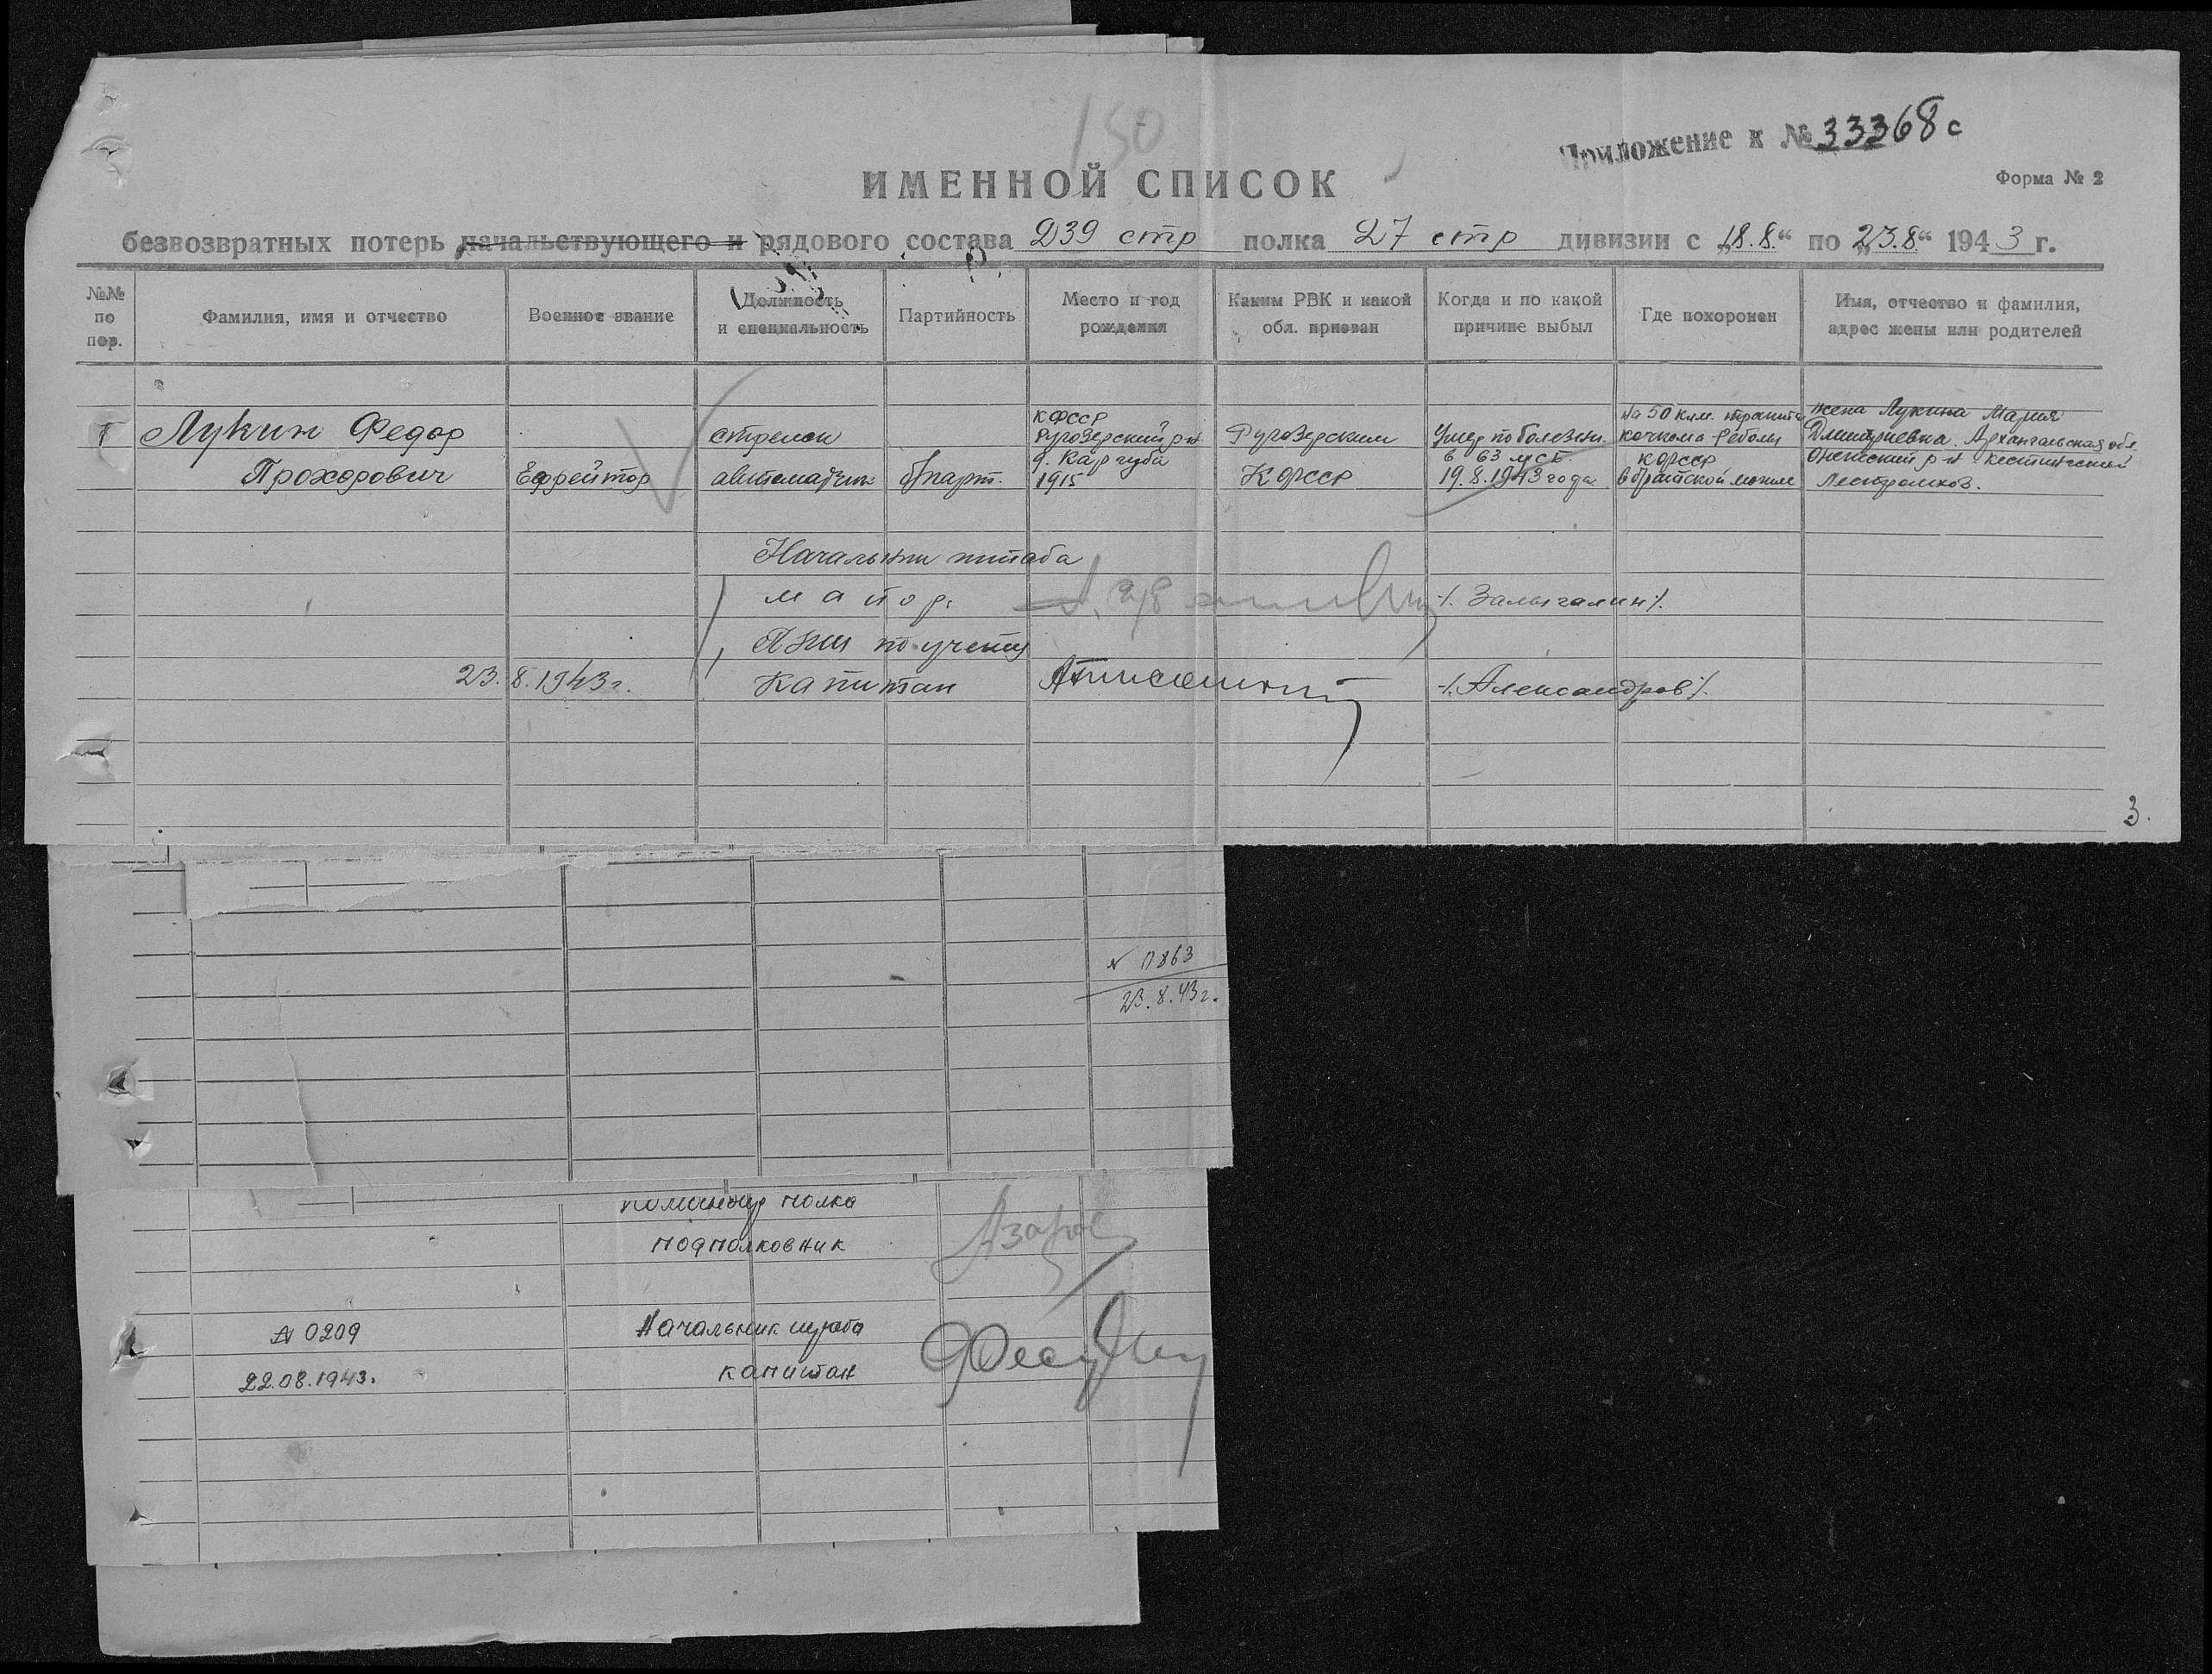 150
Приложение к № 33368с
ИМЕННОЙ СПИСОК
Форма № 2
безвозвратных потерь начальствующего и рядового состава 239 стр полка 27 стр дивизии с „18.8.“ по „23.8.“ 1943 г.
№№ по пор.
Фамилия, имя и отчество
Военное звание
Должность и специальность
Партийность
Место и год рождения
Каким РВК и какой обл. призван
Когда и по какой причине выбыл
Где похоронен
Имя, отчество и фамилия, адрес жены или родителей
1
Лукин Федор
Прохорович
Ефрейтор
стрелок
автоматчик
б/парт.
КФССР
Ругозерский р-н
д. Каргуба
1915
Ругозерским
КФССР
Умер по болезни
в 63 мсб
19.8.1943 года
На 50 клм. тракта
кочкома Реболы
КФССР
в братской могиле
жена Лукина Мария
Дмитриевна. Архангельская обл.
Онежский р-н
Начальник штаба
майор
/. Залыгалин/.
ПНШ по учету
23.8.1943г.
Капитан
/. Александров/.
3.
N 0863
23.8.43г.
Командир полка
подполковник
N 0209
Начальник штаба
22.08.1943.
капитан